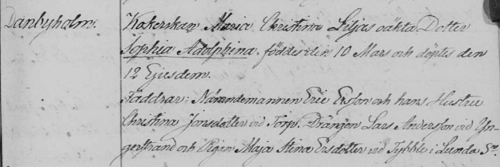 Danbyholm. Kokerskan Maria Christina Liljas oäkta Dotter
Sophia Adolphina, föddes den 10 Mars och döptes den
12 Ejusdem.
Faddrar: Nämndemannen Eric Ersson och hans Hustru
Christina Jansdotter vid Torp. Drängen Lars Andersson vid
och Pigan Maja Stina Ersdotter vid i Lunda Sn